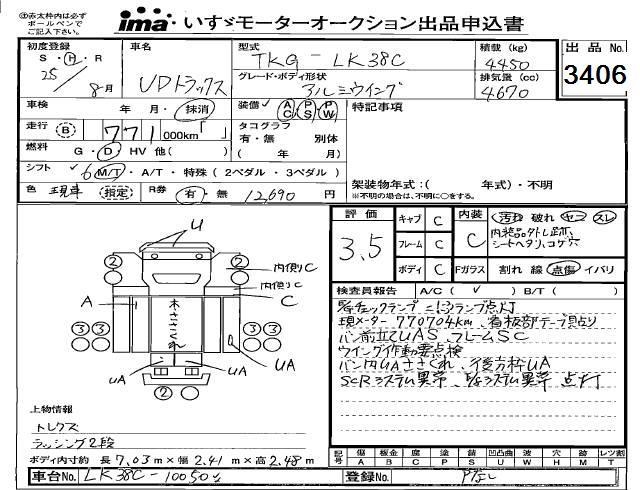 赤太枠内は必ず
ボールペンで
ご記入下さい。
ima いすゞモーターオークション出品申込書
初度登録 S・H・R 25/8月
車名 UDトラックス
型式 TKG-LK38C
グレード・ボディ形状 アルミウイング
積載 (kg) 4450
排気量 (cc) 4670
出品No. 3406
車検 年 月・抹消
装備 AC PS PW
特記事項
走行 B 771 000km
タコグラフ 有・無 別体 ( 年 月)
燃料 G・D・HV 他( )
シフト 6 M/T・A/T・特殊(2ペダル・3ペダル)
色 現車 指定 R券 有・無 12,690 円
架装物年式:( 年式)・不明
※不明の場合は、不明に○をする。
評価 3.5
キャブ C
フレーム C
ボディ C
内装 C
汚れ 破れ ヤニ スレ
内装品外し跡、
シートヘタリ、コゲ穴
Fガラス 割れ 線 点傷 イバリ
検査員報告 A/C( ✓ ) B/T( )
現メーター770704km、看板部テープ貼り
バン前立てUAS、フレームSC
ウイング作動要点検
バン内UAささくれ、
SCRシステム異常、
点灯
U
2
2
内側C
内側C
C
A
木ささくれ
3 3
3 3
UA
UA
UA
2
上物情報
トレクス
ラッシング2段
ボディ内寸約 長 7.03 m×幅 2.41 m×高 2.48 m
記号 傷 A 板金 B 腐 C 塗 P 錆 S 凹凸曲 U 波 W 穴 H 跡 M レツ割 T
車台No. LK38C-10050
登録No. Pなし